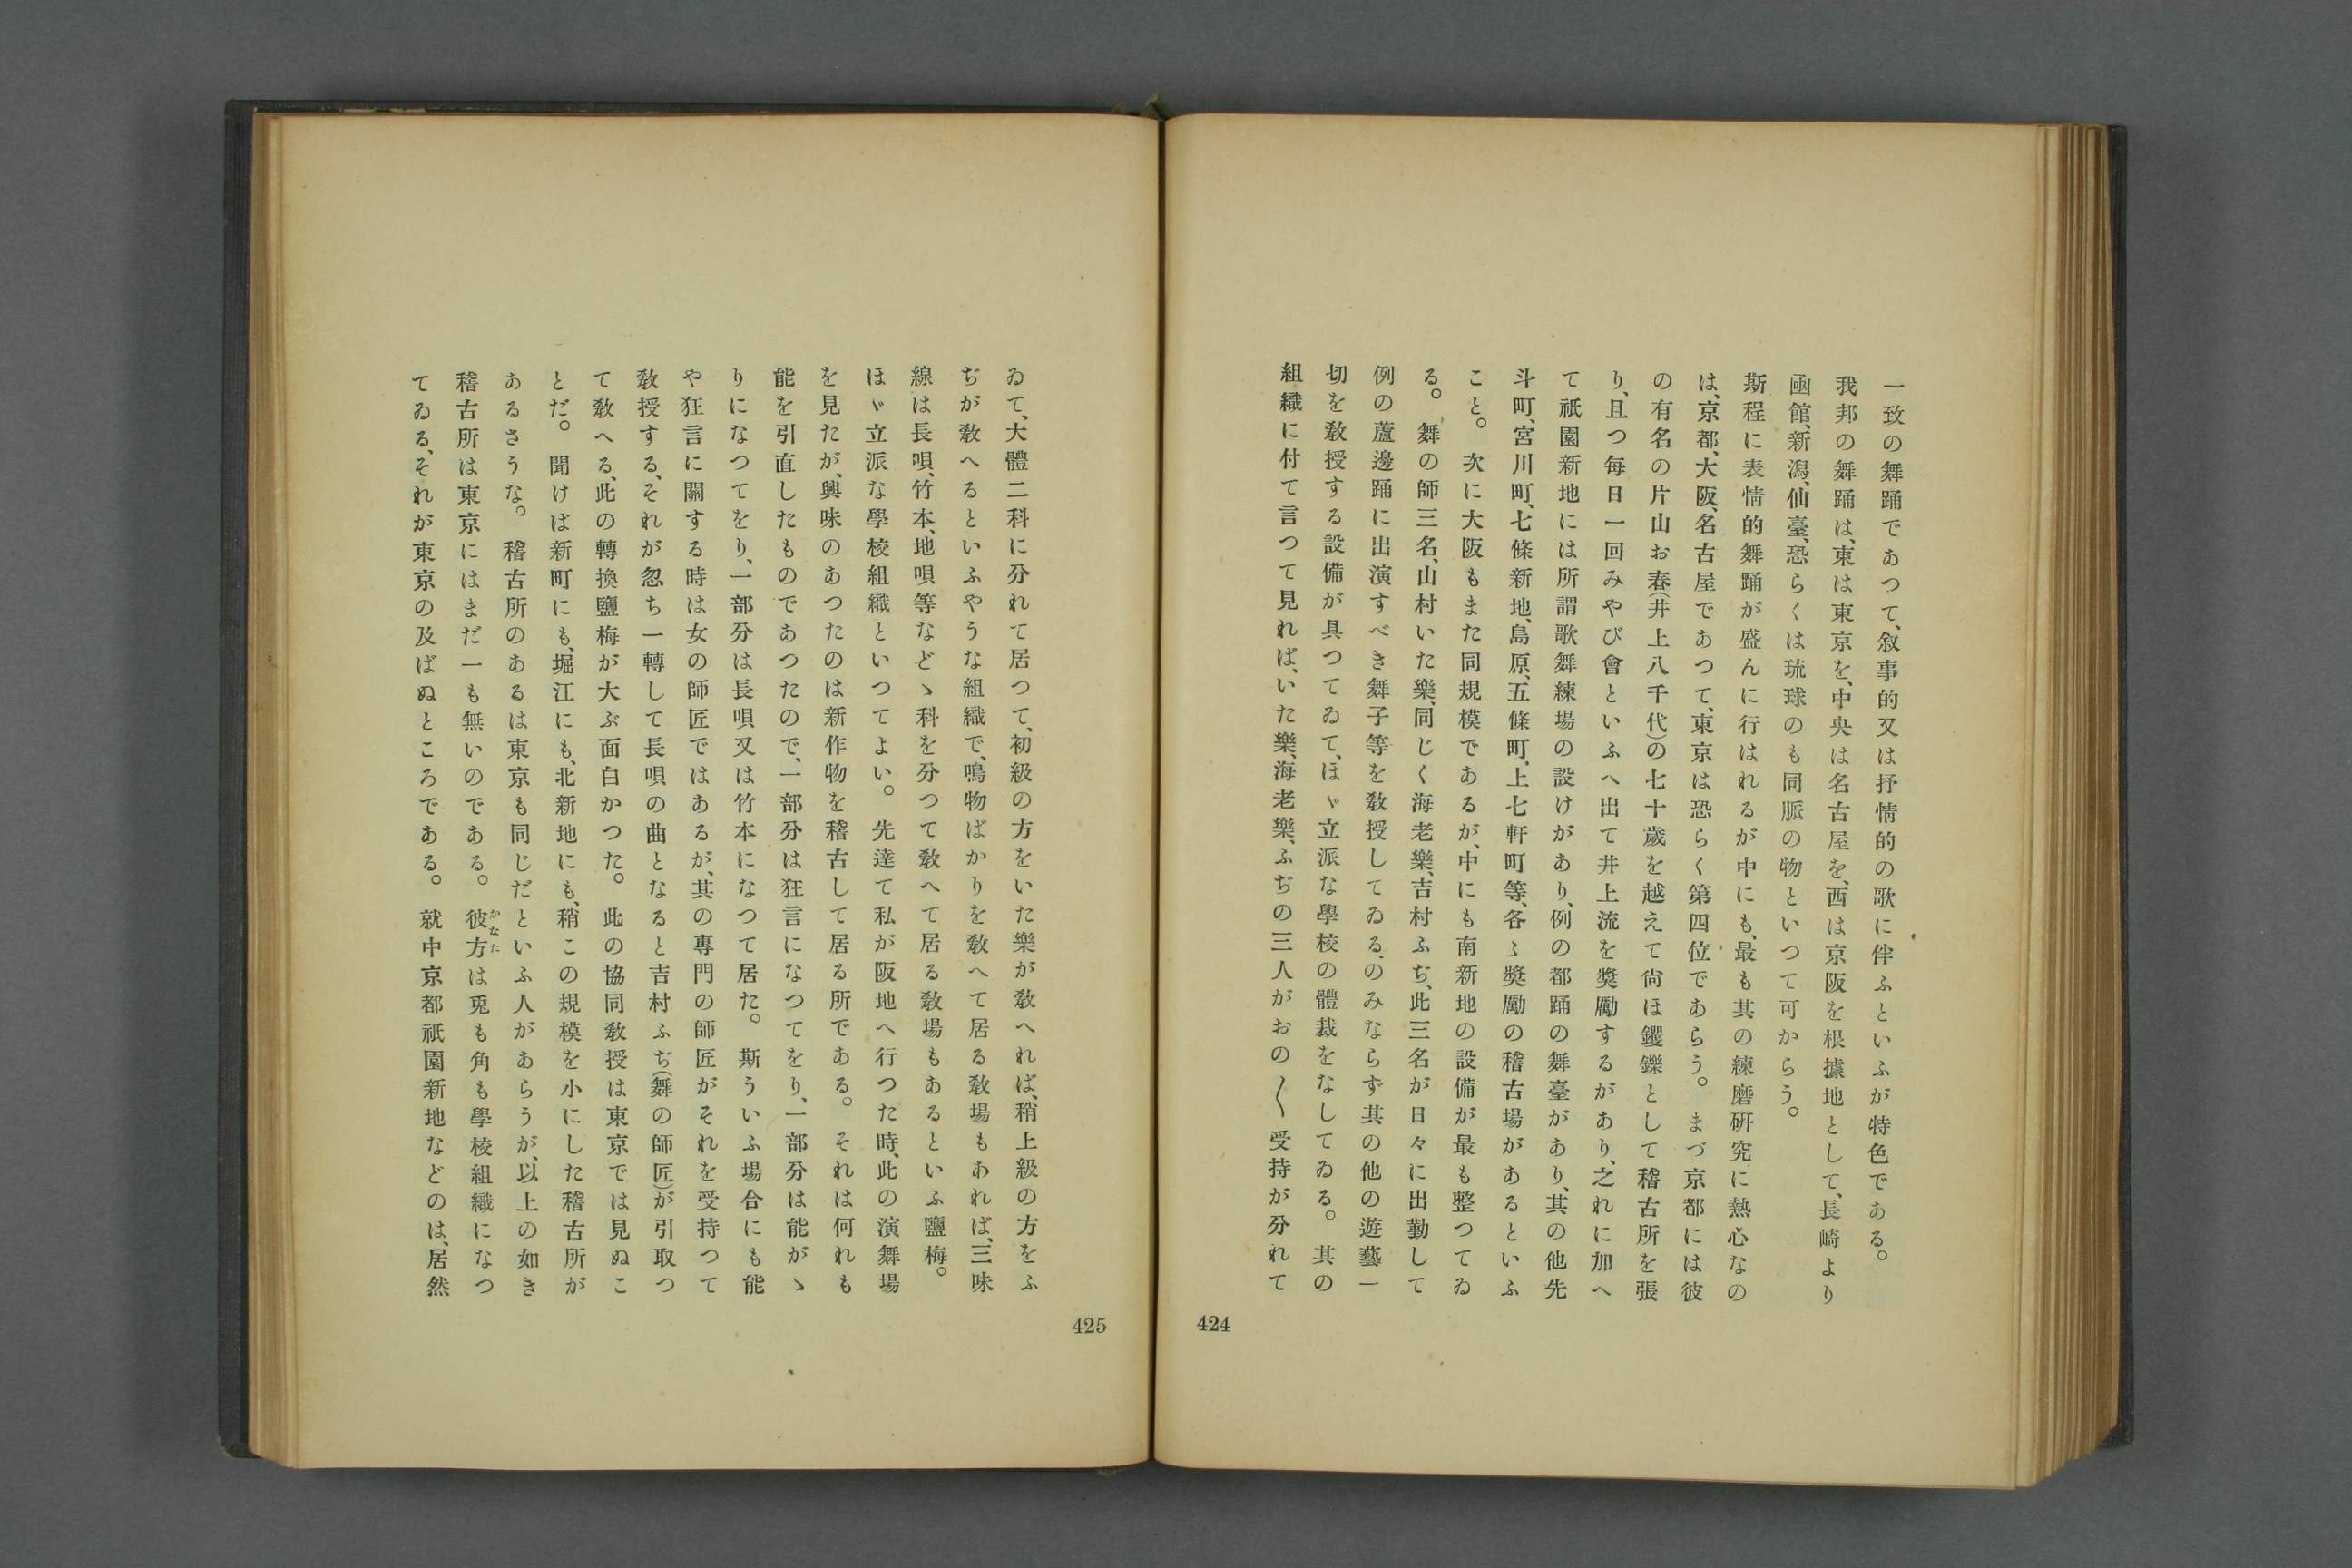 一致の舞踊であつて、叙事的又は抒情的の歌に伴ふといふが特色である。
我邦の舞踊は、東は東京を、中央は名古屋を、西は京阪を根據地として、長崎より
凾館、新潟、仙臺、恐らくは琉球のも同脈の物といつて可からう。
斯程に表情的舞踊が盛んに行はれるが中にも、最も其の練磨硏究に熱心なの
は、京都、大阪、名古屋であつて、東京は恐らく第四位であらう。 まづ京都には彼
の有名の片山お春(井上八千代)の七十歳を越えて尙ほ钁鑠として稽古所を張
り、且つ毎日一回みやび會といふへ出て井上流を奬勵するがあり、之れに加へ
て祇園新地には所謂歌舞練場の設けがあり、例の都踊の舞臺があり、其の他先
斗町、宮川町、七條新地、島原、五條町、上七軒町等、各〻奬勵の稽古場があるといふ
こと。 次に大阪もまた同規模であるが、中にも南新地の設備が最も整つてゐ
る。 舞の師三名、山村いた樂、同じく海老樂、吉村ふぢ、此三名が日々に出勤して
例の蘆邊踊に出演すべき舞子等を敎授してゐる、のみならず其の他の遊藝一
切を敎授する設備が具つてゐて、ほゞ立派な學校の體裁をなしてゐる。 其の
組織に付て言つて見れば、いた樂、海老樂、ふぢの三人がおの〱受持が分れて
424
ゐて、大體二科に分れて居つて、初級の方をいた樂が敎へれば、稍上級の方をふ
ぢが敎へるといふやうな組織で、鳴物ばかりを敎へて居る敎場もあれば、三味
線は長唄、竹本、地唄等などゝ科を分つて敎へて居る敎場もあるといふ鹽梅。
ほゞ立派な學校組織といつてよい。 先達て私が阪地へ行つた時、此の演舞場
を見たが、興味のあつたのは新作物を稽古して居る所である。 それは何れも
能を引直したものであつたので、一部分は狂言になつてをり、一部分は能がゝ
りになつてをり、一部分は長唄又は竹本になつて居た。 斯ういふ場合にも能
や狂言に關する時は女の師匠ではあるが、其の專門の師匠がそれを受持つて
敎授する、それが忽ち一轉して長唄の曲となると吉村ふぢ(舞の師匠)が引取つ
て敎へる、此の轉換鹽梅が大ぶ面白かつた。 此の協同敎授は東京では見ぬこ
とだ。 聞けば新町にも、堀江にも、北新地にも、稍この規模を小にした稽古所が
あるさうな。 稽古所のあるは東京も同じだといふ人があらうが、以上の如き
稽古所は東京にはまだ一も無いのである。 彼方かなたは兎も角も學校組織になつ
てゐる、それが東京の及ばぬところである。 就中京都祇園新地などのは、居然
425